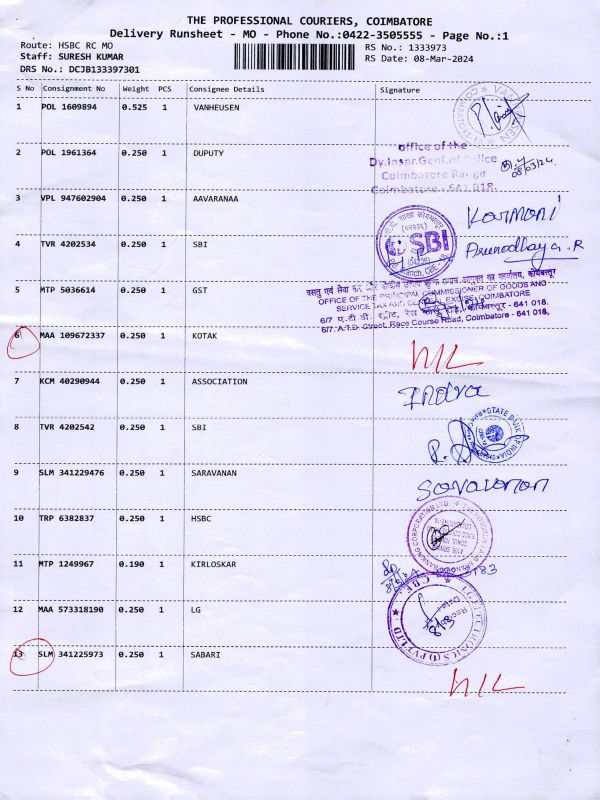 THE PROFESSIONAL COURIERS, COIMBATORE
Delivery Runsheet - MO - Phone No.:0422-3505555 - Page No.:1
Route: HSBC RC MO
RS No.: 1333973
Staff: SURESH KUMAR
RS Date: 08-Mar-2024
DRS No.: DCJB133397301
S No Consignment No Weight PCS Consignee Details Signature
1 POL 1609894 0.525 1 VANHEUSEN
2 POL 1961364 0.250 1 DUPUTY
office of the
Dy.Inspr.Genl.of Police
Coimbatore Range
Coimbatore - 641 018.
08/03/24
3 VPL 947602904 0.250 1 AAVARANAA
Karmani
4 TVR 4202534 0.250 1 SBI
SBI
5 MTP 5036614 0.250 1 GST
OFFICE OF THE PRINCIPAL COMMISSIONER OF GOODS AND
SERVICE TAX AND CENTRAL EXCISE, COIMBATORE
6/7, A.T.D. Street, Race Course Road, Coimbatore - 641 018.
6 MAA 109672337 0.250 1 KOTAK
NIL
7 KCM 40290944 0.250 1 ASSOCIATION
Indra
8 TVR 4202542 0.250 1 SBI
STATE BANK OF INDIA
9 SLM 341229476 0.250 1 SARAVANAN
Saravanan
10 TRP 6382837 0.250 1 HSBC
11 MTP 1249967 0.190 1 KIRLOSKAR
12 MAA 573318190 0.250 1 LG
LG ELECTRONICS (I) PVT LTD
CBE
13 SLM 341225973 0.250 1 SABARI
NIL